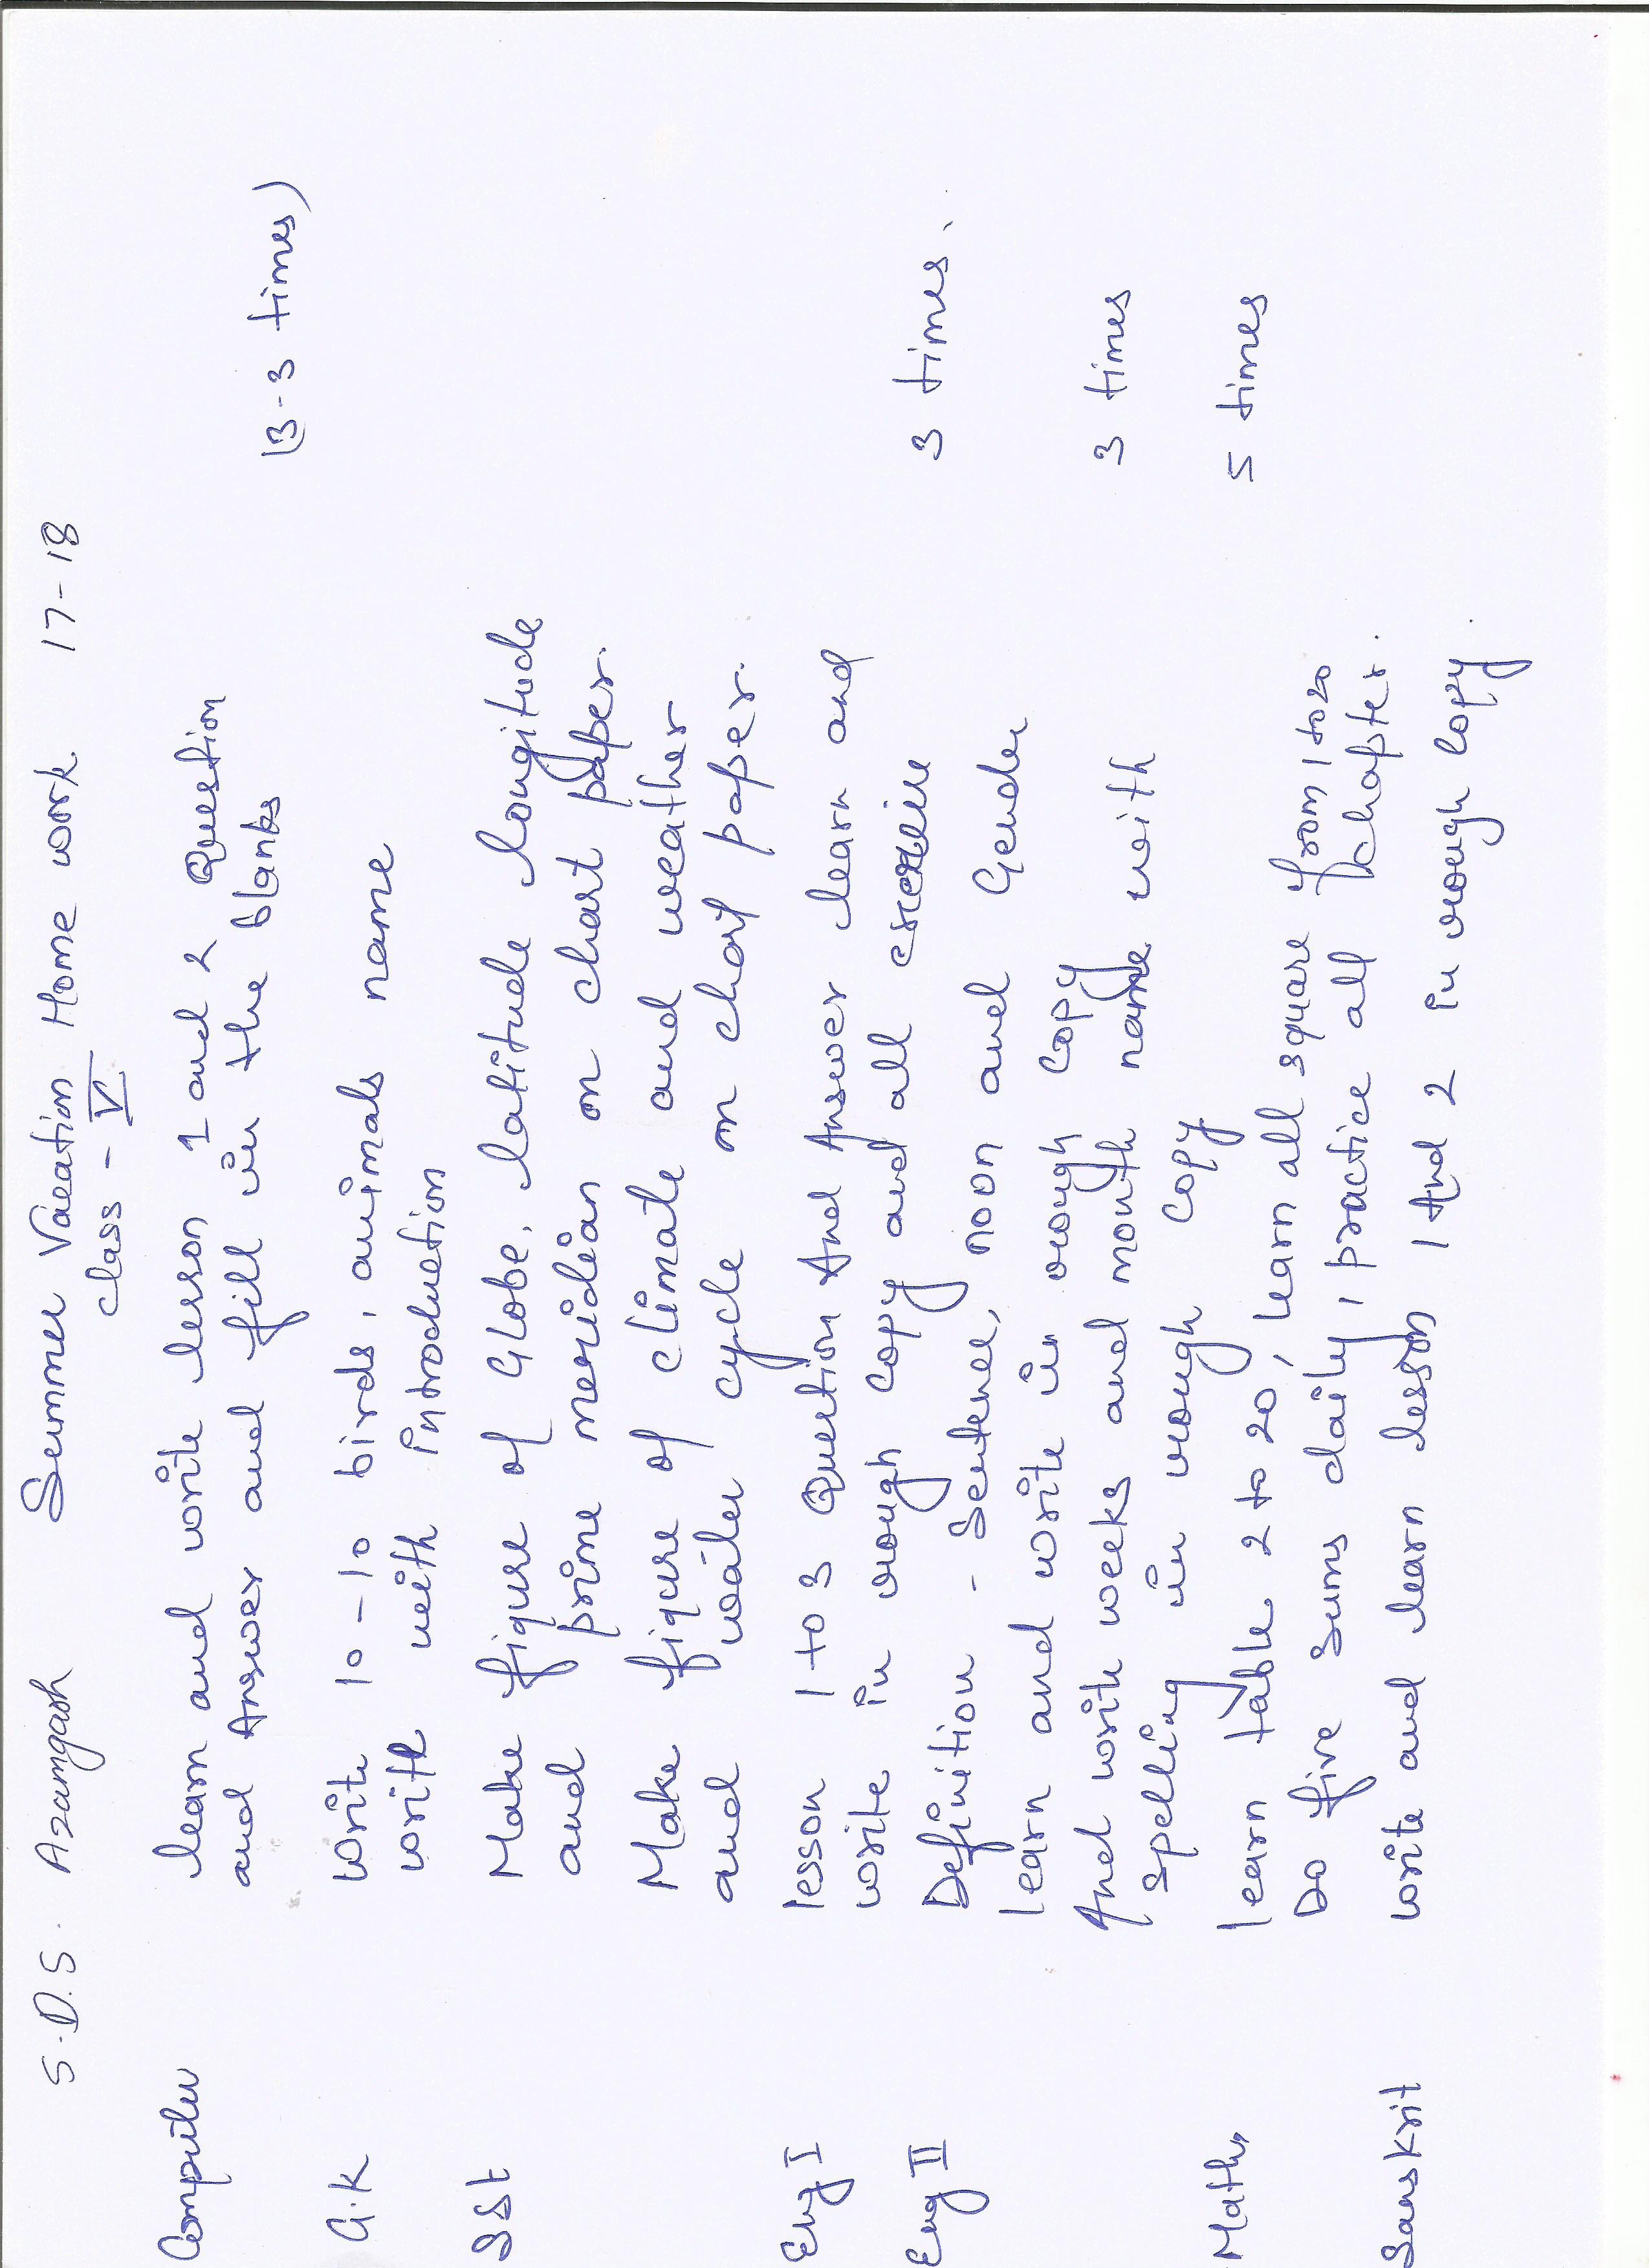 S.D.S. Azamgarh Summer Vacation Home work 17-18
class - V
Computer learn and write lesson 1 and 2 Question
and Answer and fill in the blanks (3-3 times)
G.K Write 10-10 birds, animals name
write with introduction
SSt Make figure of Globe, latitude longitude
and prime meridian on chart paper.
Make figure of climate and weather
and water cycle on chart paper.
Eng I lesson 1 to 3 Question And Answer learn and
write in rough copy and all exercise 3 times.
Eng II Definition - Sentence, noon and Gender
learn and write in rough copy
And write weeks and month name with 3 times
spelling in rough copy
Maths learn table 2 to 20, learn all square from 1 to 20 5 times
Do five sums daily, practice all chapter.
Sanskrit write and learn lesson 1 And 2 in rough copy.